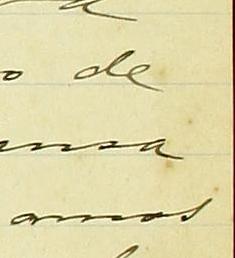 o de
ansa
amos